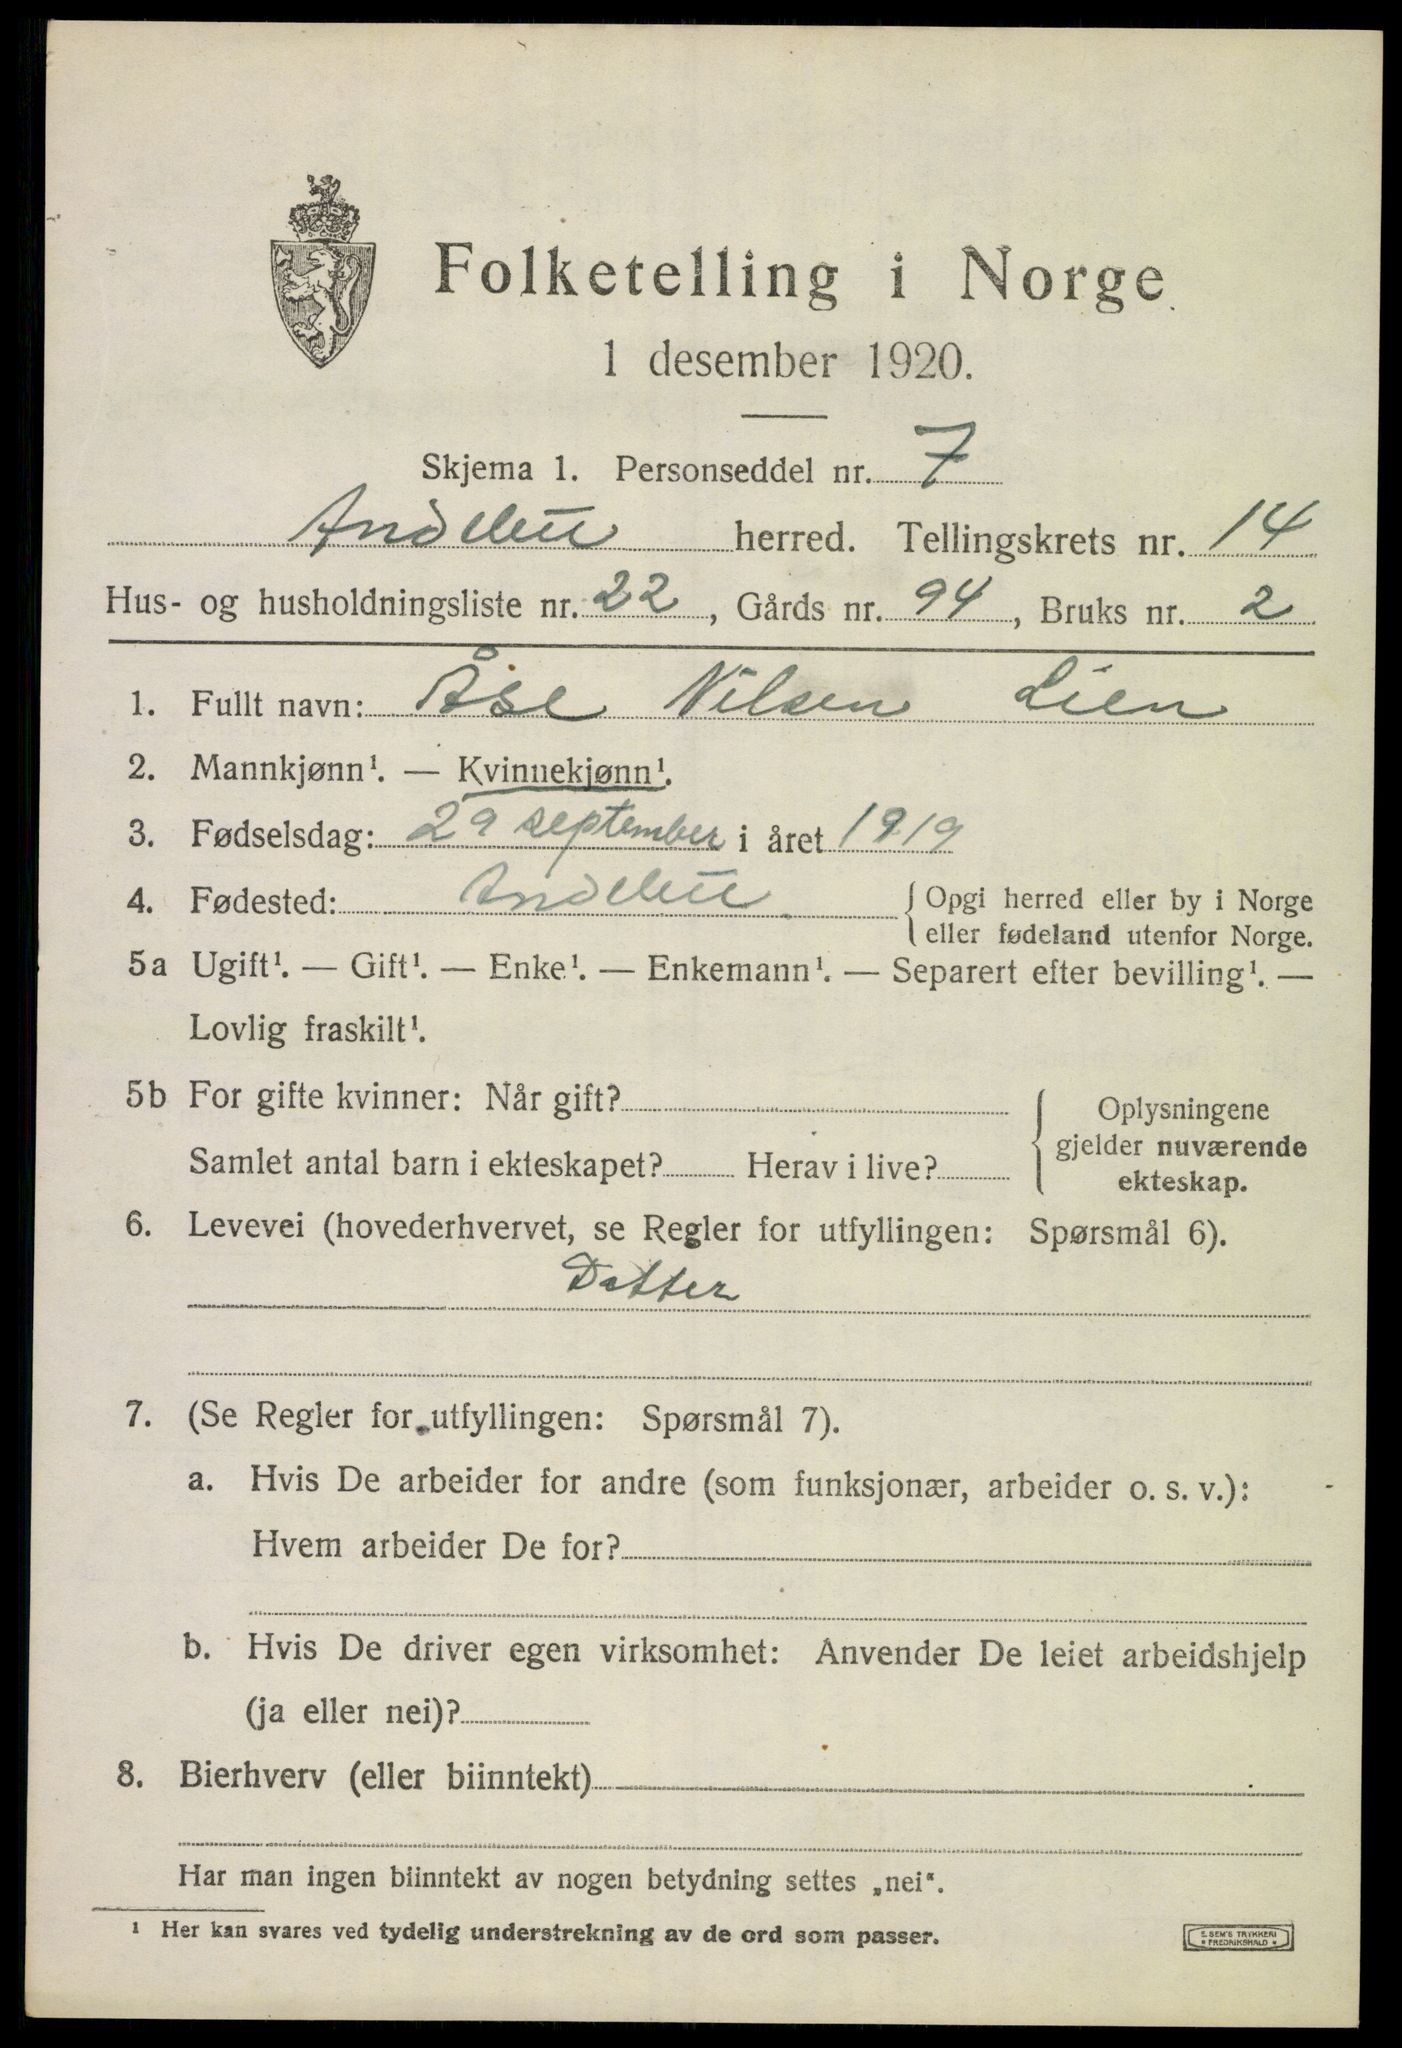 Folketelling i Norge
1 desember 1920.
Skjema 1. Personseddel nr. 7
Andebu herred. Tellingskrets nr. 14
Hus- og husholdningsliste nr. 22, Gårds nr. 94, Bruks nr. 2
1. Fullt navn: Åse Nilsen Lien
2. Mannkjønn¹. — Kvinnekjønn¹.
3. Fødselsdag: 29 september i året 1919
4. Fødested: Andebu { Opgi herred eller by i Norge
eller fødeland utenfor Norge.
5a Ugift¹. — Gift¹. — Enke¹. — Enkemann¹. — Separert efter bevilling¹. —
Lovlig fraskilt¹.
5b For gifte kvinner: Når gift?
Samlet antal barn i ekteskapet? Herav i live?
{ Oplysningene
gjelder nuværende
ekteskap.
6. Levevei (hovederhvervet, se Regler for utfyllingen: Spørsmål 6).
Datter
7. (Se Regler for utfyllingen: Spørsmål 7).
a. Hvis De arbeider for andre (som funksjonær, arbeider o. s. v.):
Hvem arbeider De for?
b. Hvis De driver egen virksomhet: Anvender De leiet arbeidshjelp
(ja eller nei)?
8. Bierhverv (eller biinntekt)
Har man ingen biinntekt av nogen betydning settes „nei“.
¹ Her kan svares ved tydelig understrekning av de ord som passer.
E. SEM'S TRYKKERI
• FREDRIKSHALD •